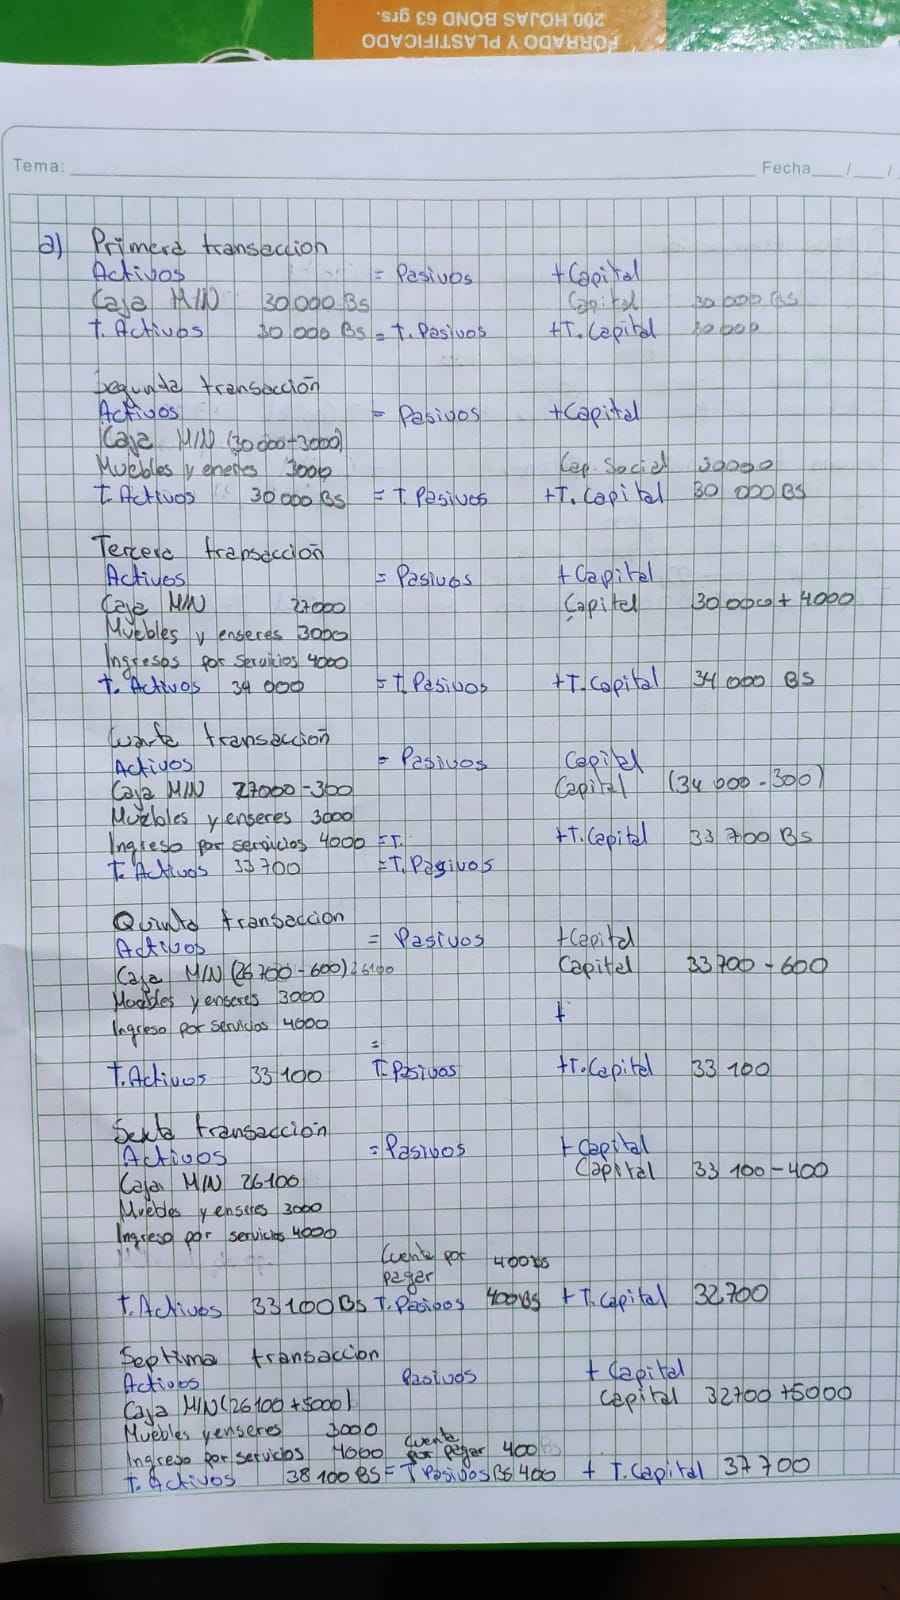 200 HOJAS BOND 63 grs.
FORRADO Y PLASTIFICADO
Tema: Fecha / /
a) Primera transaccion
Activos = Pasivos + Capital
Caja M/N 30000 Bs Capital 30 000 Bs
T. Activos 30 000 Bs = T. Pasivos +T. Capital 30 000
Segunda transacción
Activos = Pasivos + Capital
Caja M/N (30000-3000)
Muebles y eneres 3000 Cap. Social 30000
T. Activos 30000 Bs = T. Pasivos +T. Capital 30 000 Bs
Tercera transacción
Activos = Pasivos + Capital
Caja M/N 27000 Capital 30000 + 4000
Muebles y enseres 3000
Ingresos por servicios 4000
T. Activos 34 000 = T. Pasivos +T. Capital 34 000 Bs
Cuarta transaccion
Activos = Pasivos Capital
Caja M/N 27000 - 300 Capital (34 000 - 300)
Muebles y enseres 3000
Ingreso por servicios 4000 = T. +T. Capital 33 700 Bs
T. Activos 33700 = T. Pasivos
Quinta transaccion
Activos = Pasivos + Capital
Caja M/N (26700 - 600) 26100 Capital 33700 - 600
Muebles y enseres 3000
Ingreso por servicios 4000 +
=
T. Activos 33 100 T. Pasivos +T. Capital 33 100
Sexta transacción
Activos = Pasivos + Capital
Caja M/N 26100 Capital 33 100 - 400
Muebles y enseres 3000
Ingreso por servicios 4000
Cuenta por 400 Bs
pagar
T. Activos 33100 Bs T. Pasivos 400 Bs + T. Capital 32700
Septima transaccion
Activos Pasivos + Capital
Caja M/N (26100 + 5000) Capital 32700 + 5000
Muebles y enseres 3000 Cuenta
Ingreso por servicios 4000 por pagar 400 Bs
T. Activos 38 100 Bs = T Pasivos Bs 400 + T. Capital 37700